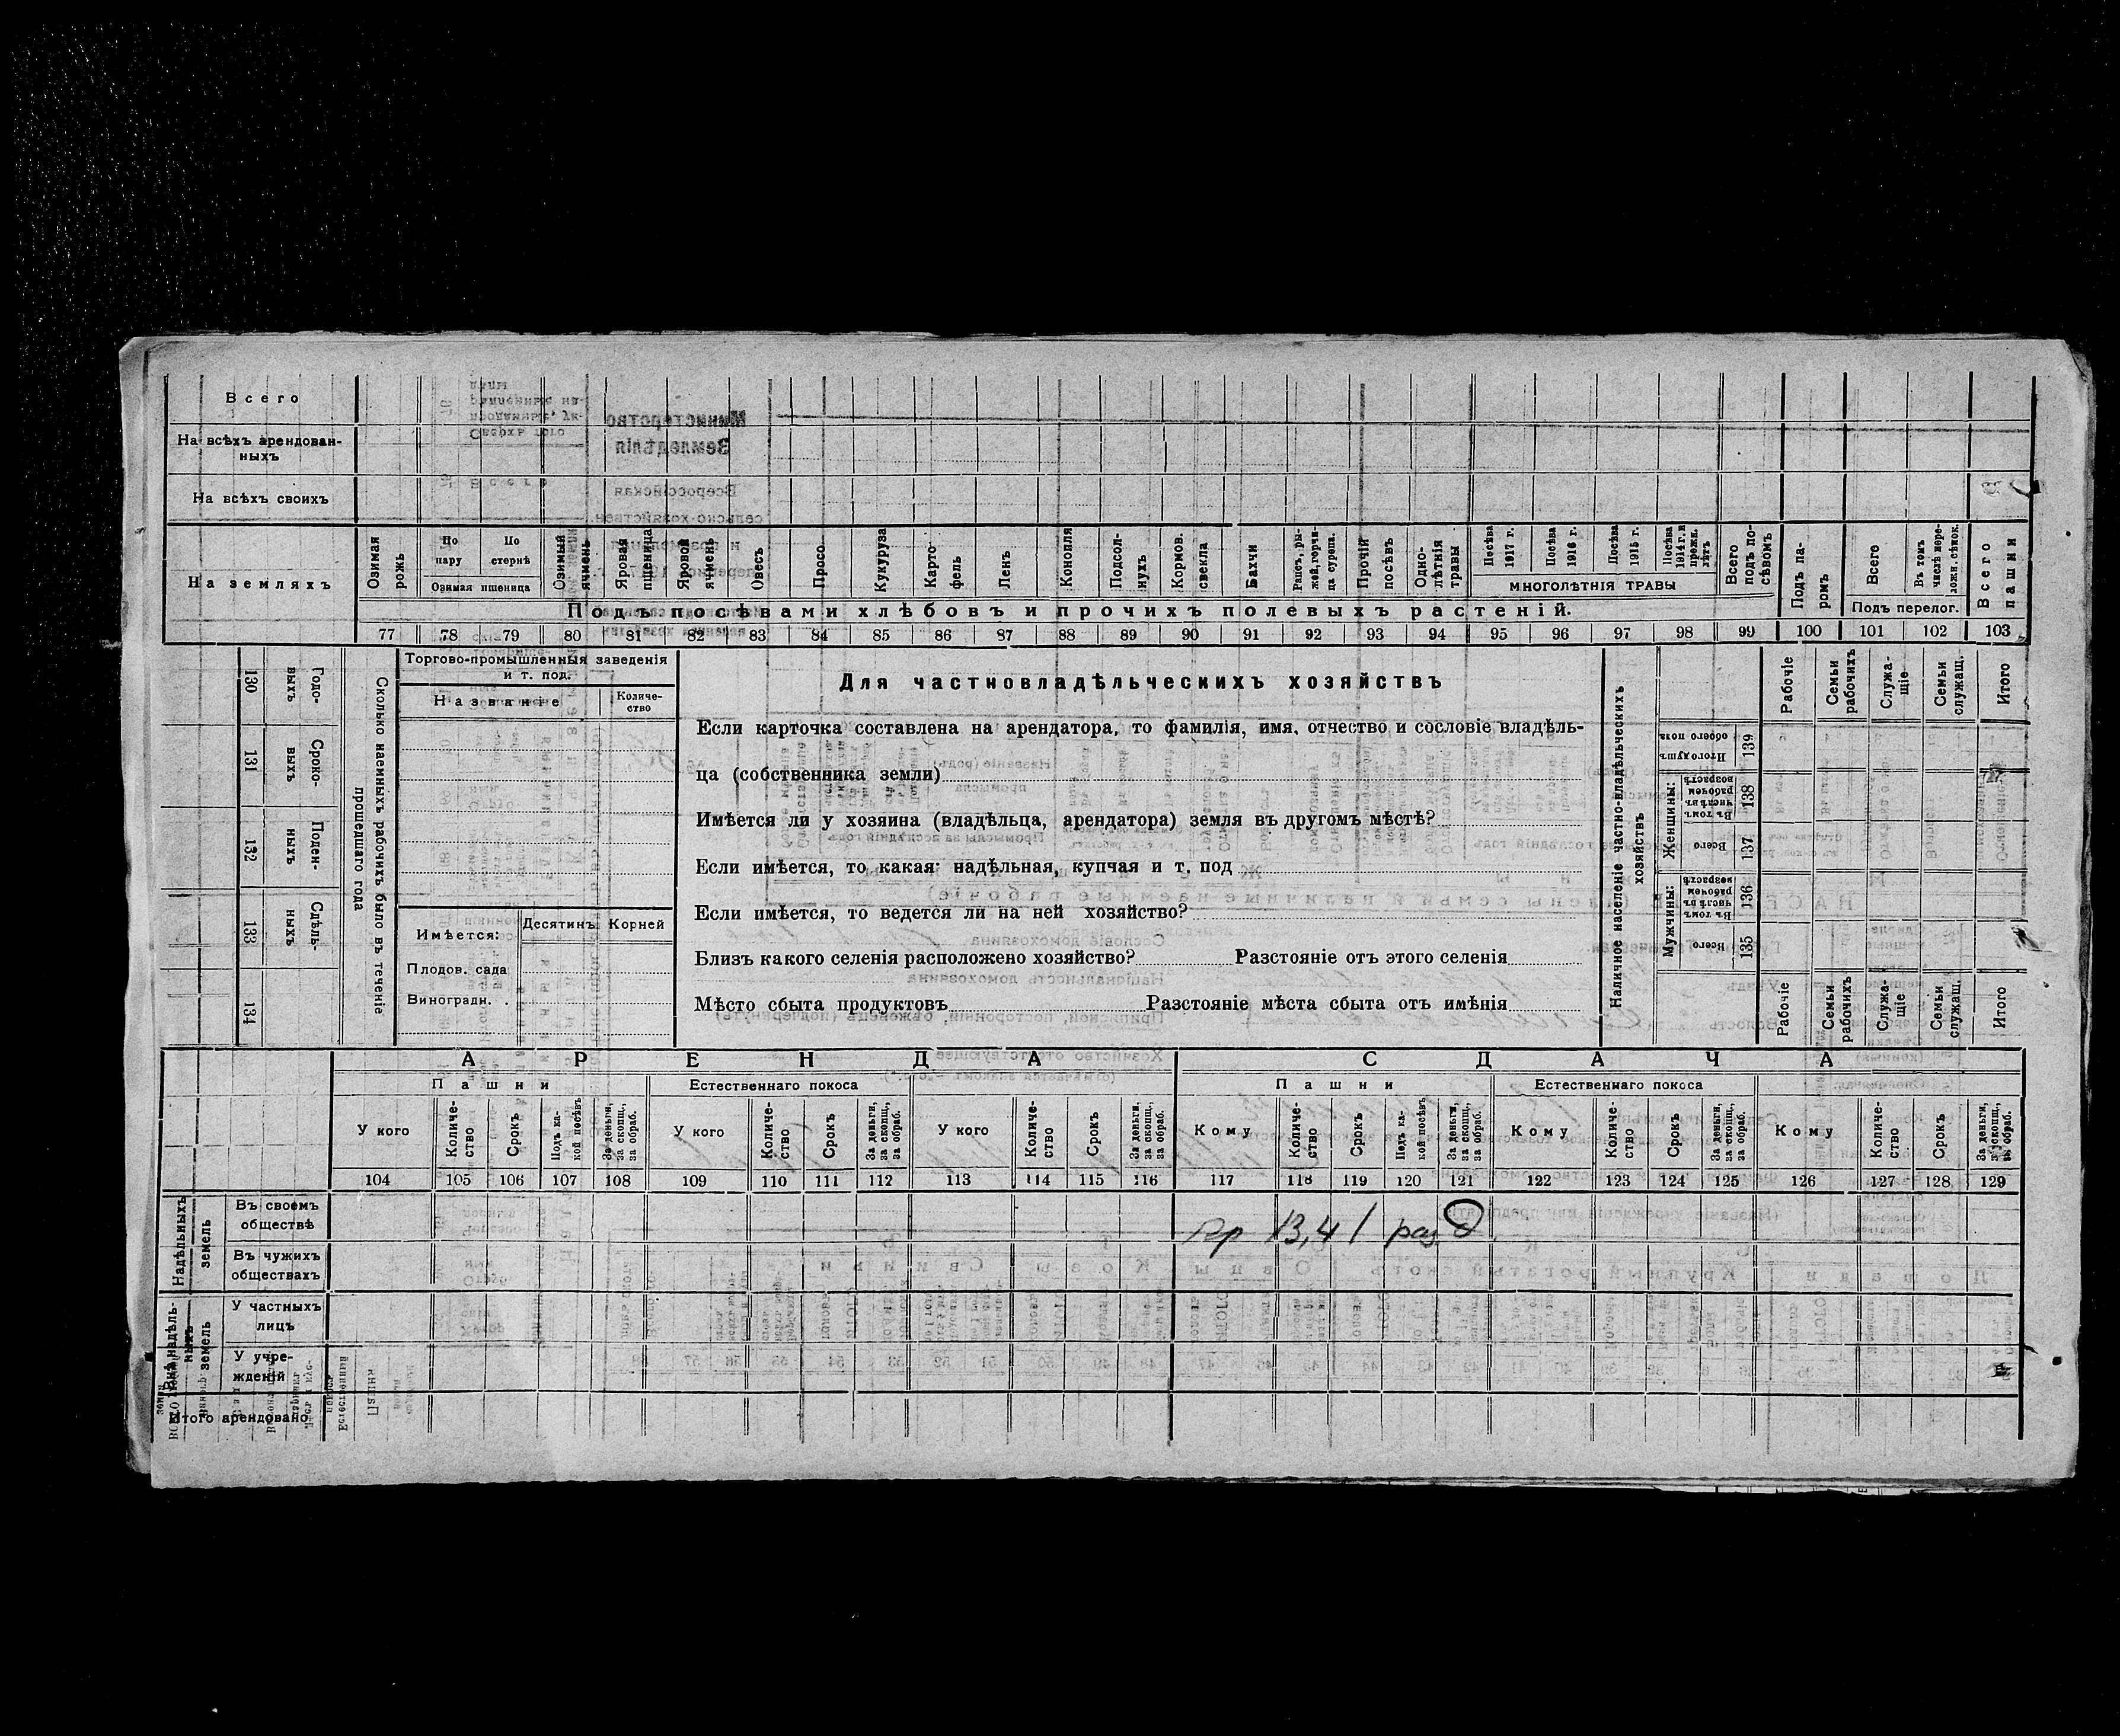 Всего
На всѣхъ арендован-
ныхъ
На всѣхъ своихъ
На земляхъ
Озимая рожь
По пару
По стернѣ
Озимая пшеница
Озимый ячмень
Яровая пшеница
Яровой ячмень
Овесъ
Просо
Кукуруза
Карто-
фель
Ленъ
Конопля
Подсол-
нухъ
Кормов.
свекла
Бахчи
Рапсъ, ры-
жей, горчи-
ца сурепа.
Прочій посѣвъ
Одно-
лѣтнія травы
Посѣва 1917 г.
Посѣва 1916 г.
Посѣва 1915 г.
Посѣва 1914 г. и прежн. лѣтъ
МНОГОЛѢТНІЯ ТРАВЫ
Всего подъ по-
сѣвомъ
Подъ па-
ромъ
Всего
Въ томъ числѣ пере-
ложн. сѣнок.
Подъ перелог.
Всего пашни
Подъ посѣвами хлѣбовъ и прочихъ полевыхъ растеній.
77 78 79 80 81 82 83 84 85 86 87 88 89 90 91 92 93 94 95 96 97 98 99 100 101 102 103
130 Годо-
выхъ
131 Сроко-
выхъ
132 Поден-
ныхъ
133 Сдѣль-
ныхъ
134
Сколько наемныхъ рабочихъ было въ теченіе
прошедшаго года
Торгово-промышленныя заведенія
и т. под.
Названіе
Количе-
ство
Имѣется:
Десятинъ
Корней
Плодов. сада
Виноградн. .
Для частновладѣльческихъ хозяйствъ
Если карточка составлена на арендатора, то фамилія, имя, отчество и сословіе владѣль-
ца (собственника земли)
Имѣется ли у хозяина (владѣльца, арендатора) земля въ другомъ мѣстѣ?
Если имѣется, то какая: надѣльная, купчая и т. под
Если имѣется, то ведется ли на ней хозяйство?
Близъ какого селенія расположено хозяйство? Разстояніе отъ этого селенія
Мѣсто сбыта продуктовъ Разстояніе мѣста сбыта отъ имѣнія
Наличное населеніе частно-владѣльческихъ
хозяйствъ
Мужчины:
Женщины:
Всего
135
Въ томъ числѣ въ рабочемъ возрастѣ
136
Всего
137
Въ томъ числѣ въ рабочемъ возрастѣ
138
Итого душъ обоего пола
139
Рабочіе
Семьи рабочихъ
Служа-
щіе
Семьи служащ.
Итого
Рабочіе
Семьи рабочихъ
Служа-
щіе
Семьи служащ.
Итого
АРЕНДА
СДАЧА
Пашни
Естественнаго покоса
Пашни
Естественнаго покоса
У кого
Количе-
ство
Срокъ
Подъ ка-
кой посѣвъ
За деньги, за скопщ., за обраб.
У кого
Количе-
ство
Срокъ
За деньги, за скопщ., за обраб.
У кого
Количе-
ство
Срокъ
За деньги, за скопщ., за обраб.
Кому
Количе-
ство
Срокъ
Подъ ка-
кой посѣвъ
За деньги, за скопщ., за обраб.
Кому
Количе-
ство
Срокъ
За деньги, за скопщ., за обраб.
Кому
Количе-
ство
Срокъ
За деньги, за скопщ., за обраб.
104 105 106 107 108 109 110 111 112 113 114 115 116 117 118 119 120 121 122 123 124 125 126 127 128 129
Надѣльныхъ
земель
Въ своемъ
обществѣ
13,41
Въ чужихъ
обществахъ
Внѣ надѣль-
ныхъ земель
У частныхъ
лицъ
У учре-
жденій
Итого арендовано